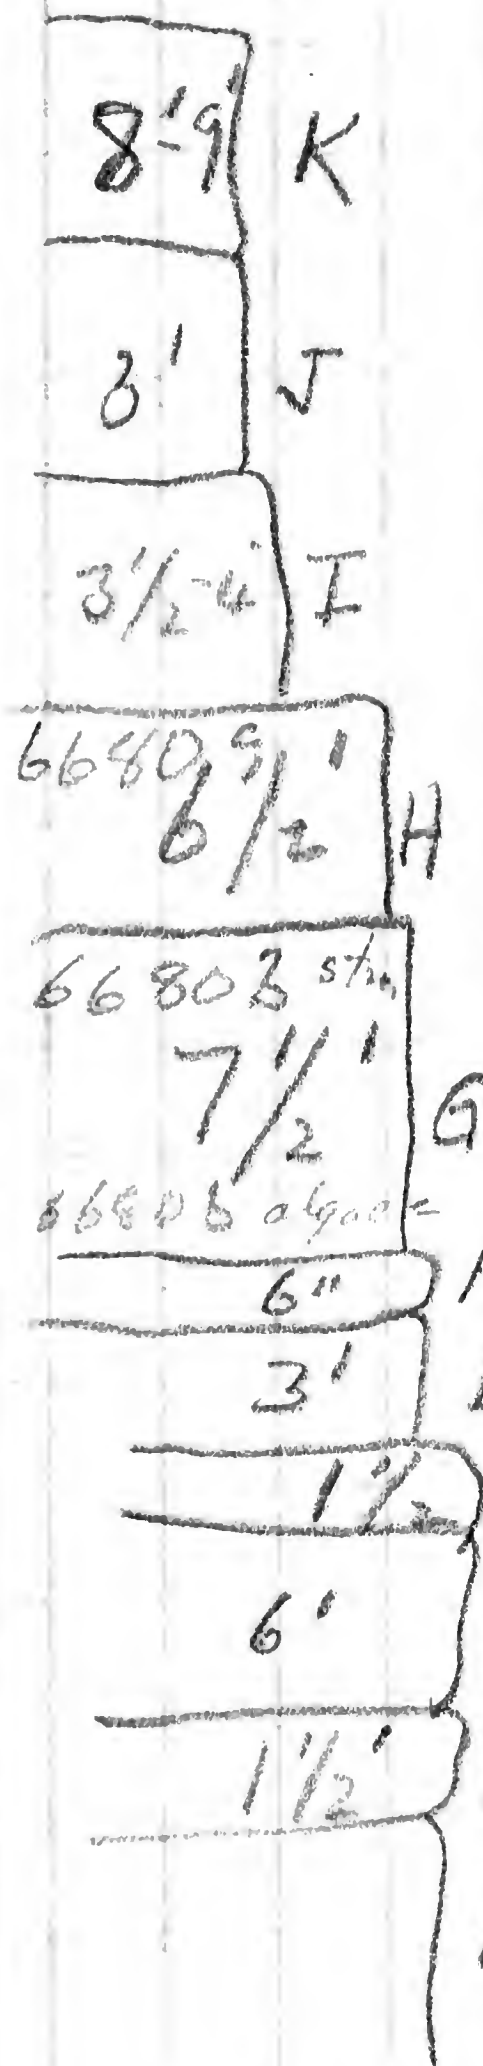 8'-9' K
8' J
3 1/2-4' I
66809
6 1/2' H
66808
7 1/2' G
66808 algae
6"
3'
1 1/2
6'
1 1/2'